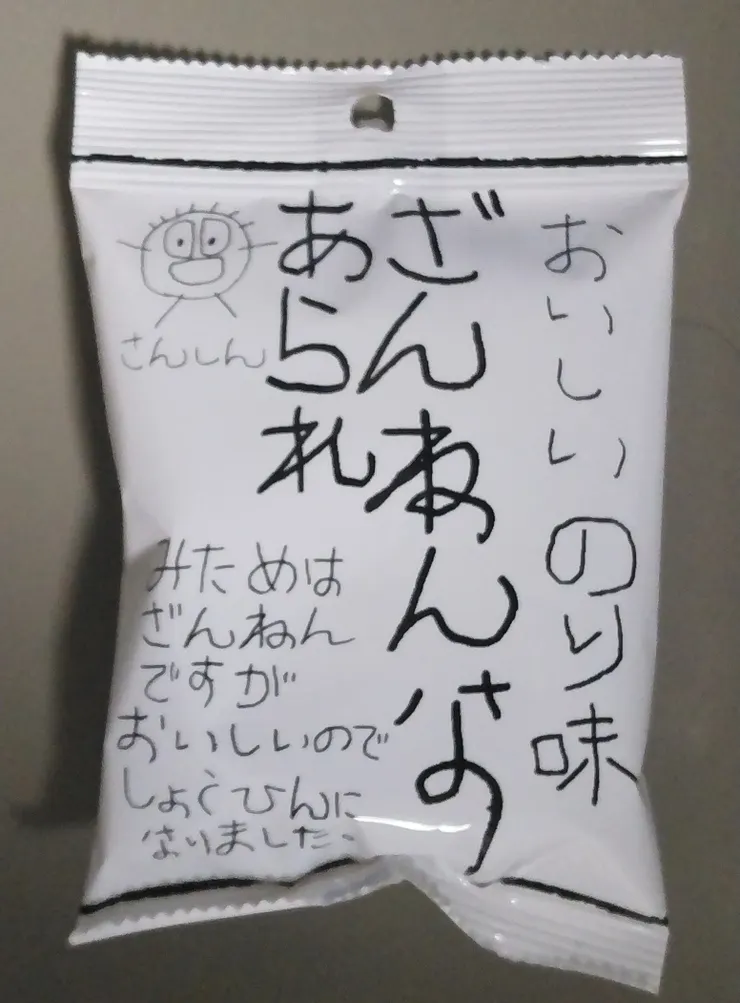 おいしいのり味
ざんねんな
あられ
さんしん
みためは
ざんねん
ですが
おいしいので
しょうひんに
なりました、